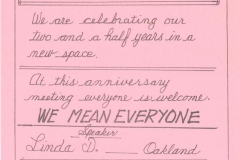 We are celebrating our
two and a half years in a
new space.
At this anniversary
meeting everyone is welcome.
WE MEAN EVERYONE
Speaker
Linda D. Oakland